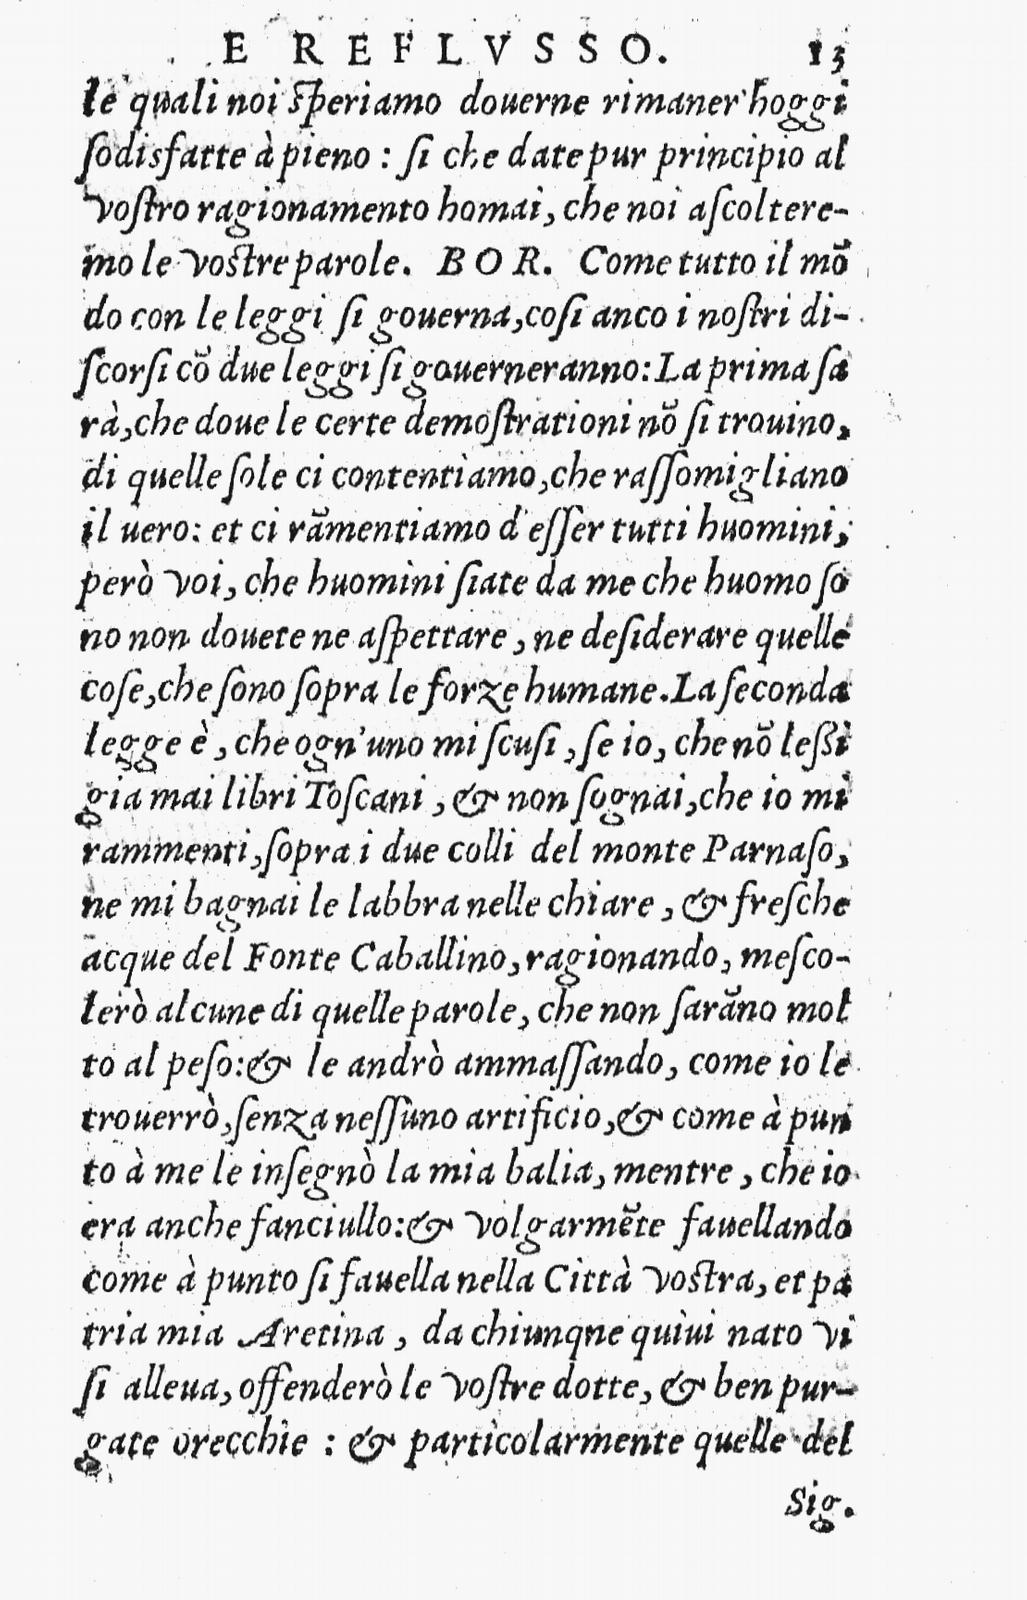 E REFLVSSO. 13
le quali noi ſperiamo douerne rimaner hoggi
ſodisfatte à pieno : ſi che date pur principio al
voſtro ragionamento homai, che noi aſcoltere-
mo le voſtre parole. BOR. Come tutto il mõ
do con le leggi ſi gouerna,coſi anco i noſtri di-
ſcorſi cõ due leggi ſi gouerneranno:La prima ſa
rà,che doue le certe demoſtrationi nõ ſi trouino,
di quelle ſole ci contentiamo,che raſſomigliano
il uero: et ci rãmentiamo d'eſſer tutti huomini;
però voi, che huomini ſiate da me che huomo ſo
no non douete ne aſpettare , ne deſiderare quelle
coſe,che ſono ſopra le forze humane.La ſeconda
legge è , che ogn'uno mi ſcuſi , ſe io, che nõ leßi
gia mai libri Toſcani , & non ſognai,che io mi
rammenti,ſopra i due colli del monte Parnaſo,
ne mi bagnai le labbra nelle chiare , & freſche
acque del Fonte Caballino,ragionando, meſco-
lerò alcune di quelle parole, che non ſarãno mol
to al peſo:& le andrò ammaſſando, come io le
trouerrò,ſenza neſſuno artificio,& come à pun
to à me le inſegnò la mia balia, mentre , che io
era anche fanciullo:& volgarmẽte fauellando
come à punto ſi fauella nella Città voſtra, et pa
tria mia Aretina , da chiunqne quiui nato vi
ſi alleua, offenderò le voſtre dotte, & ben pur-
gate orecchie : & particolarmente quelle del
Sig.